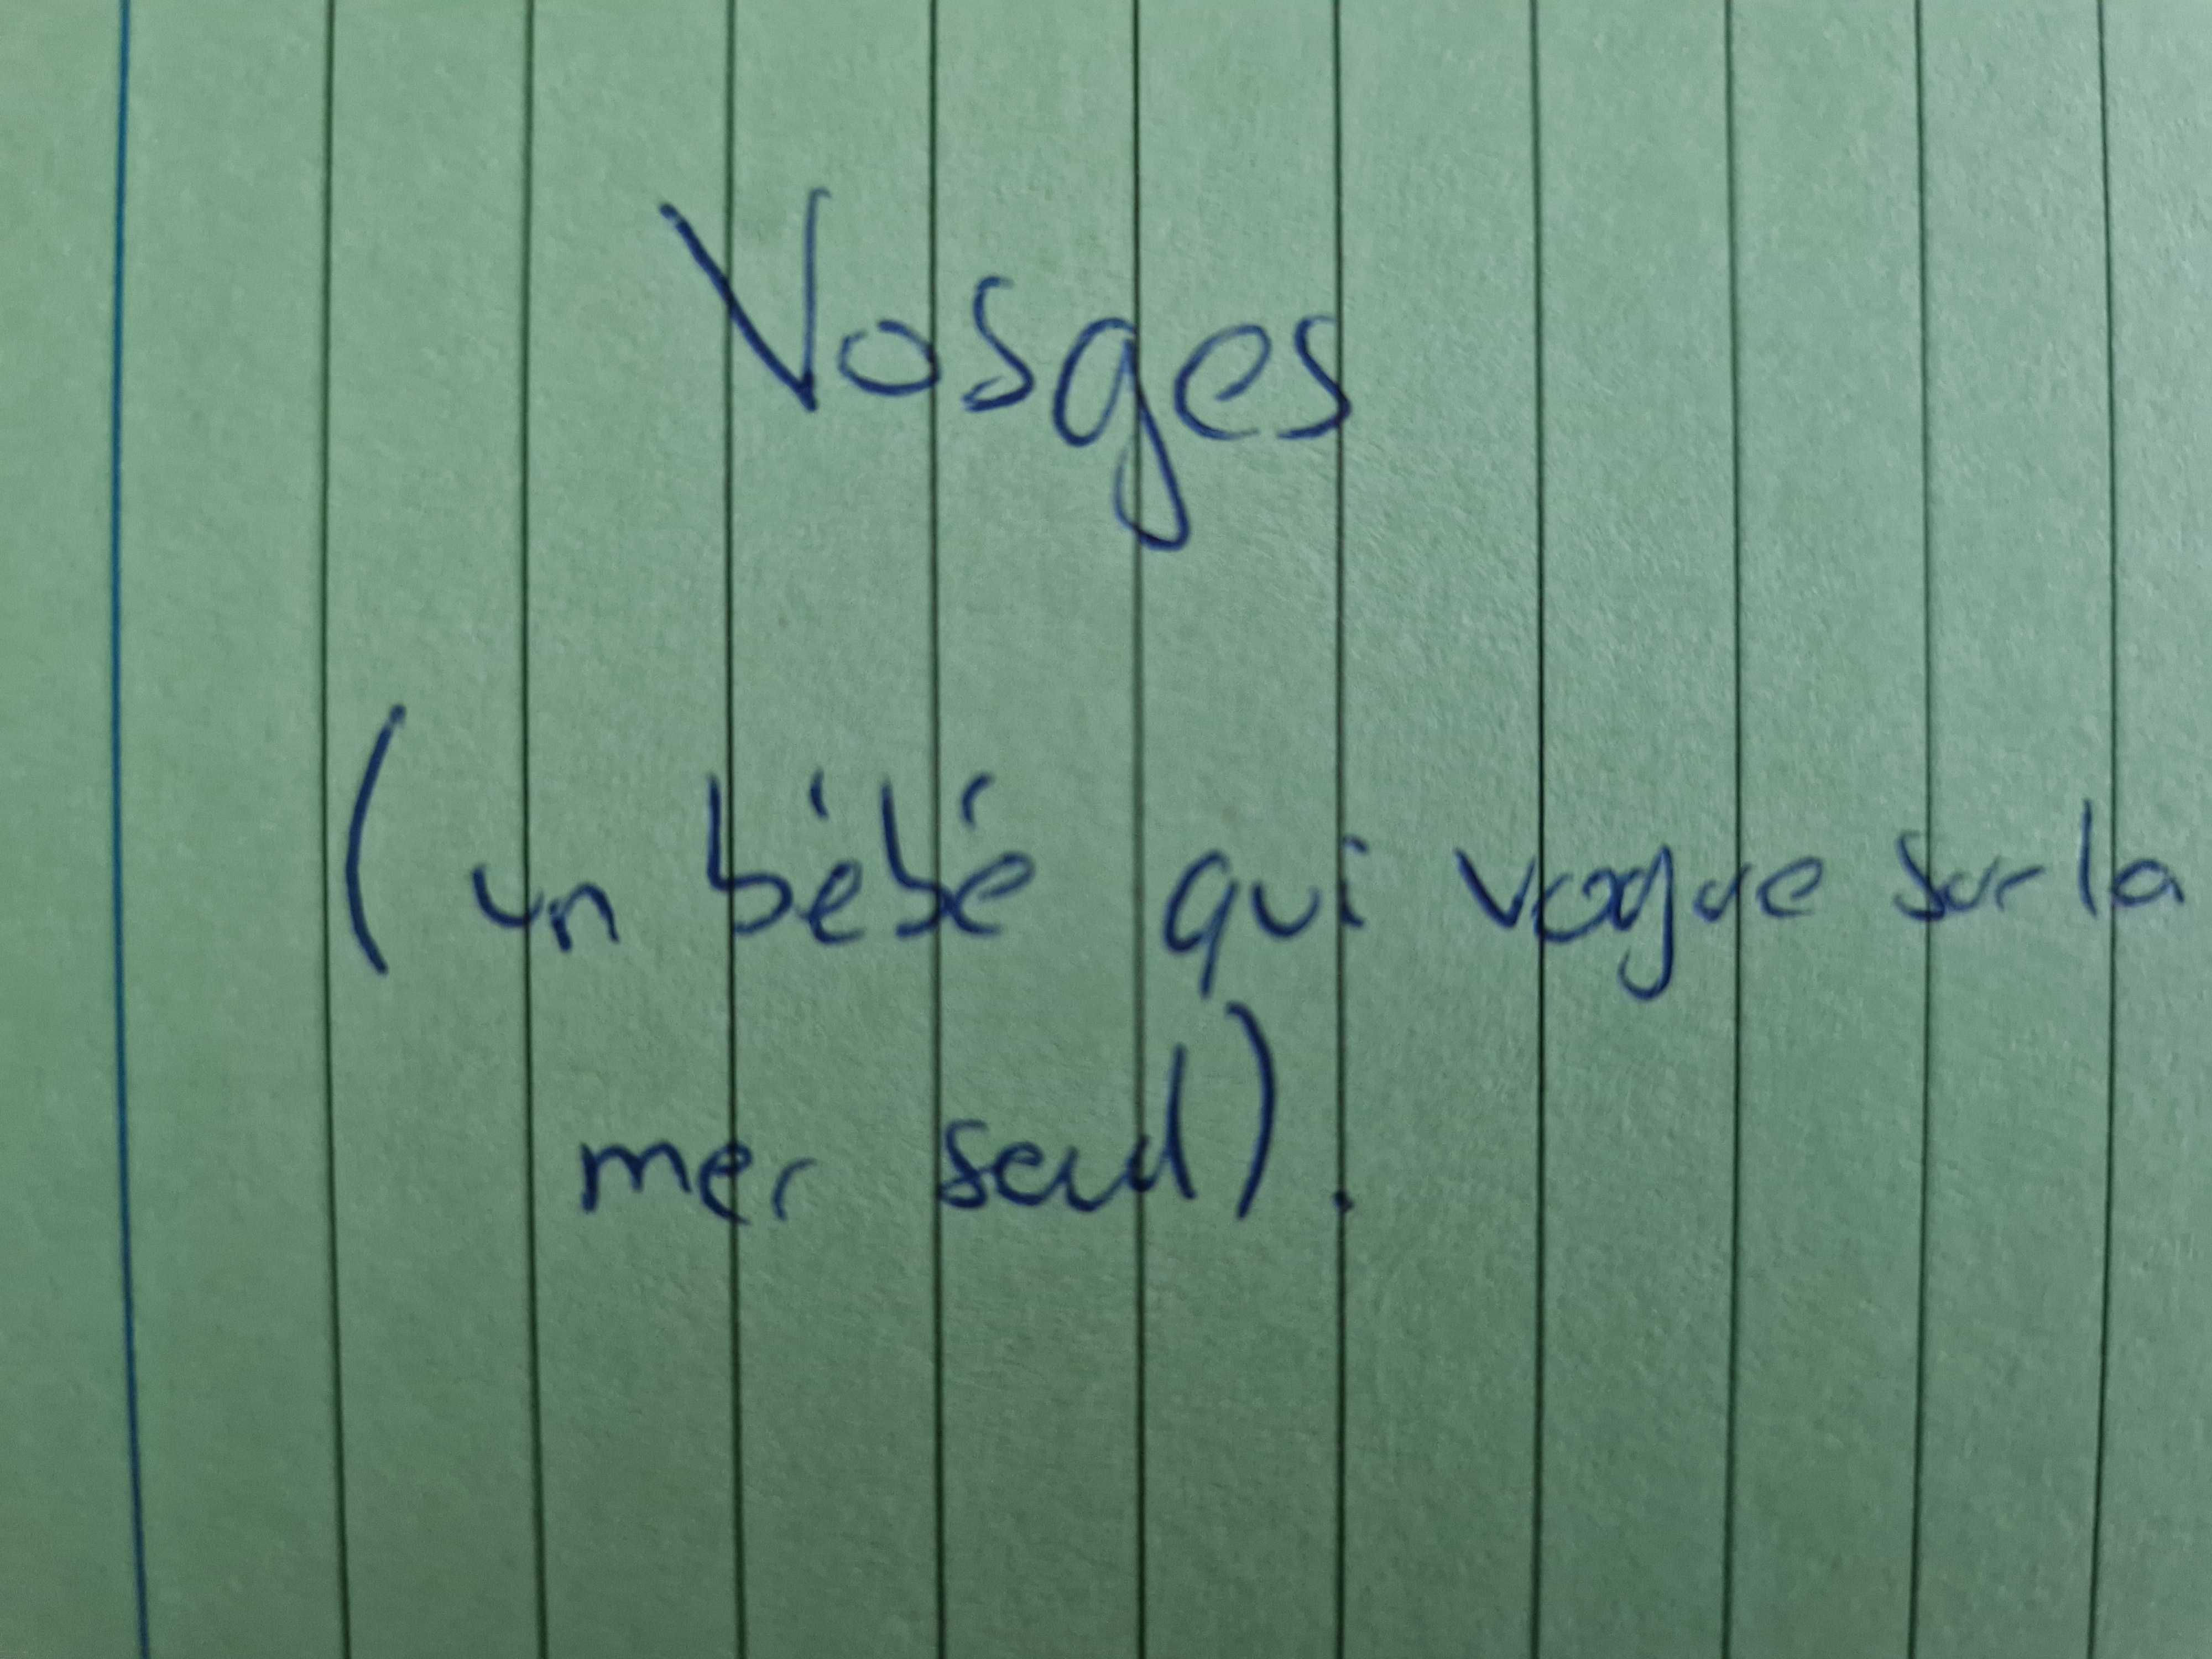 Vosges
(un bébé qui vogue sur la
mer seul).